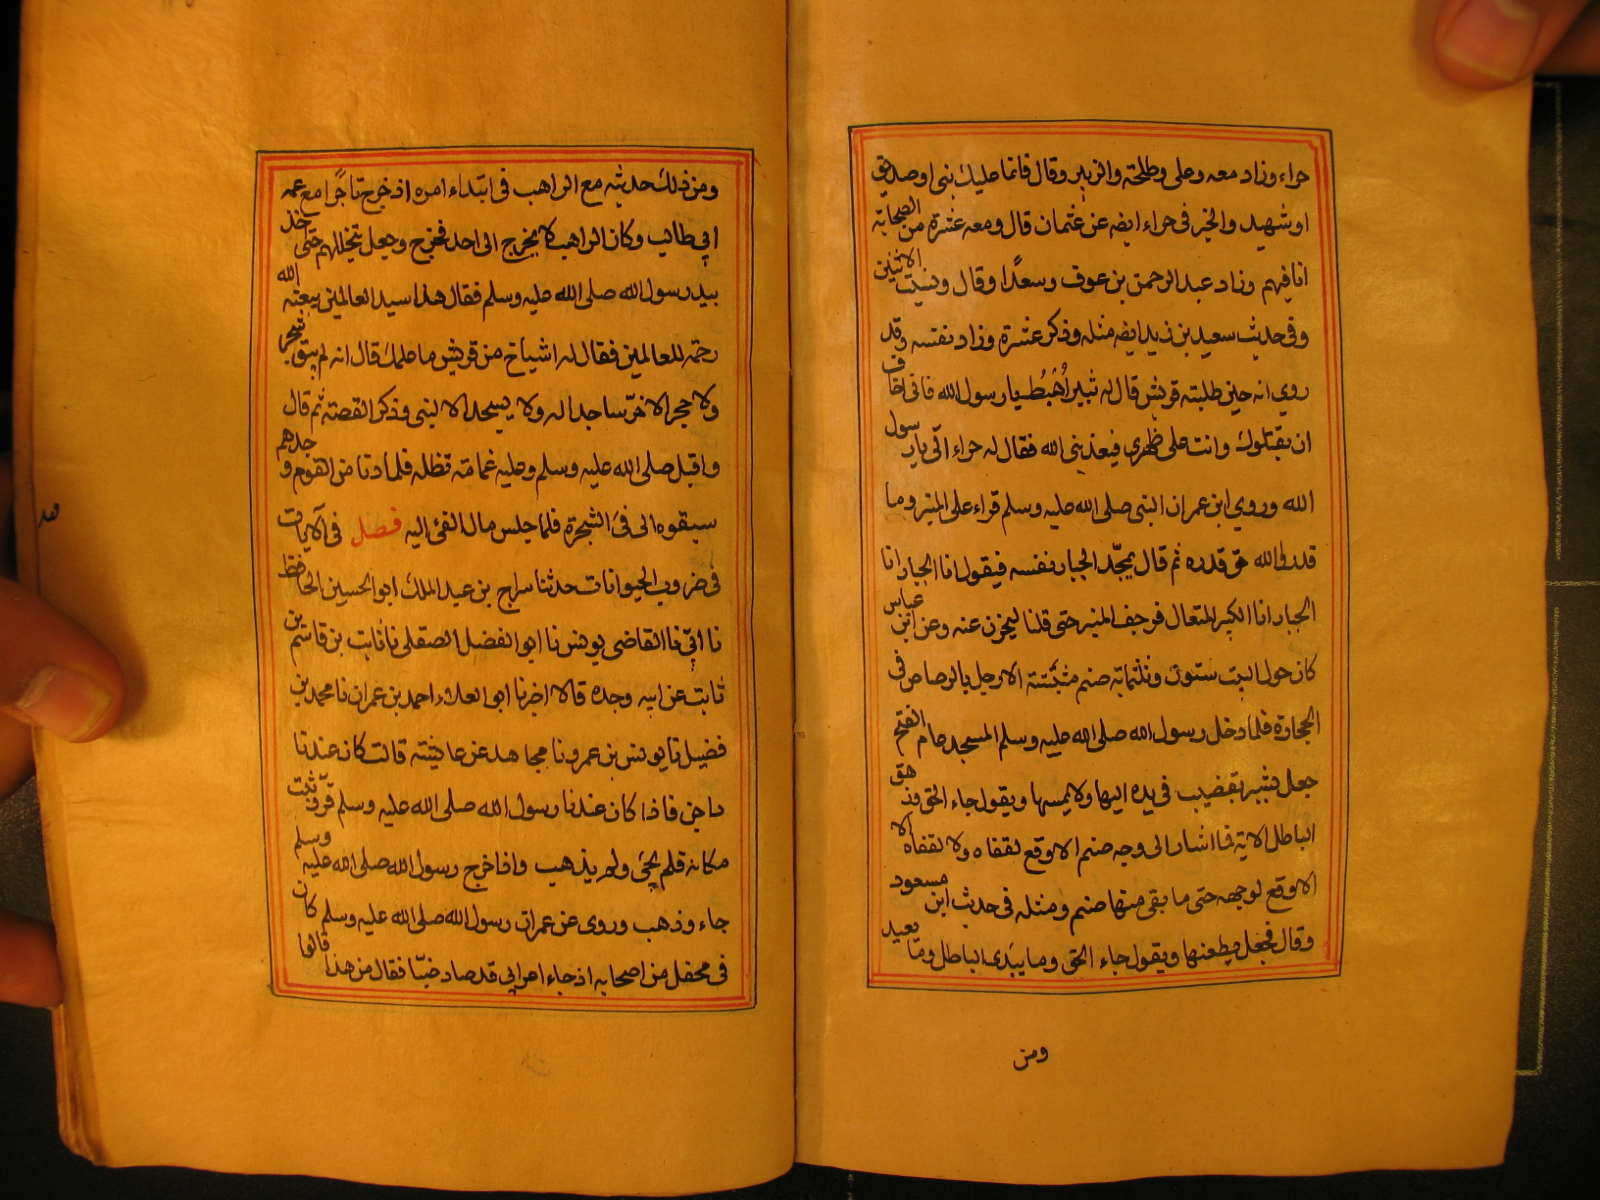 حراء وزاد معه وعلى وطلحة والزبير وقال فانما عليك نبى او صديق
او شهيد والخبر فى حراء ايضه عن عثمان قال ومعه عشرة من الصحابة
انا فيهم وزاد عبد الرحمن بن عوف وسعدًا وقال ونسيت الاثنين
وفى حديث سعيد بن زيد ايضه مثله وذكر عشرة وزاد نفسه وقد
روي انه حين طلبته قريش قال له ثبير اُهْبُطْ يا رسول الله فانى اخاف
ان يقتلوك وانت على ظهري فيعذبنى الله فقال له حراء الّى يا رسول
الله وروي ابن عمران النبى صلى الله عليه وسلم قراء على المنبر وما
قدروا الله حق قدره ثم قال يمجّد الجبار نفسه فيقول انا الجبار انا
الجبار انا الكبير المتعال فرجف المنبر حتى قلنا ليخرن عنه وعن ابن عباس
كان حول البيت ستون وثلثمائة صنم مثبّتة الارجل بالرصاص فى
الحجارة فلما دخل رسول الله صلى الله عليه وسلم المسجد عام الفتح
جعل يشير بقضيب فى يده اليها ولا يمسها ويقول جاء الحق وزهق
الباطل الاية فما اشار الى وجه صنم الا وقع لقفاه ولا لقفاه الا
الا وقع لوجهه حتى ما بقى منها صنم ومثله فى حديث ابن مسعود
وقال فجعل يطعنها ويقول جاء الحق وما يبدى الباطل وما يعيد
ومن
ومن ذلك حديثه مع الراهب فى ابتداء امره اذ خرج تاجرًا مع عمه
ابي طالب وكان الراهب لا يخرج الى احد فخرج وجعل يتخللهم حتى اخذ
بيد رسول الله صلى الله عليه وسلم فقال هذا سيد العالمين يبعثه الله
رحمة للعالمين فقال له اشياخ من قريش ما علمك قال انه لم يبق شجر
ولا حجر الا خرّ ساجدا له ولا يسجد الا لنبى وذكر القصته ثم قال
واقبل صلى الله عليه وسلم وعليه غمامة تظله فلما دنا من القوم وجدهم
سبقوه الى فئ الشجرة فلما جلس مال الفئ اليه فصل فى الآيات
فى ضروب الحيوانات حدثنا سراج بن عبد الملك ابو الحسين الحافظ
نا ابي نا القاضى يونس نا ابو الفضل الصقلى نا ثابت بن قاسم بن
ثابت عن ابيه وجده قالا اخبرنا ابو العلاء احمد بن عمران نا محمد بن
فضيل نا يونس بن عمرو نا مجاهد عن عايشة قالت كان عندنا
داجن فاذا كان عندنا رسول الله صلى الله عليه وسلم قرّ وثبت
مكانه فلم يجئ ولم يذهب واذا خرج رسول الله صلى الله عليه وسلم
جاء وذهب وروى عن عمران رسول الله صلى الله عليه وسلم كان
فى محفل من اصحابه اذ جاء اعرابي قد صاد ضبّا فقال من هذا قالوا